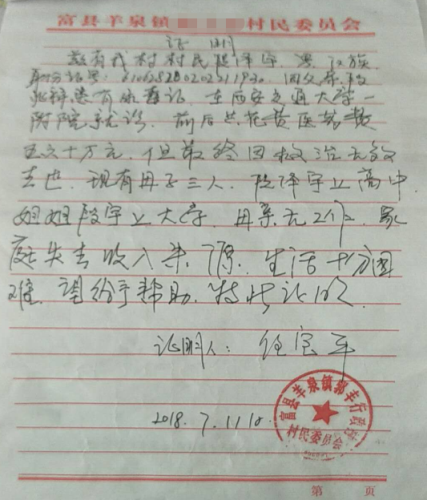 富县羊泉镇 村民委员会
证明
兹有我村村民段泽宇,男,汉族
身份证号:
患有 在西安交通大学一
附院就诊,前后共花费医药费
五六十万元,但最终因救治无效
去世,现有母子三人,段泽宇上高中
姐姐段宇上大学,母亲无 家
庭失去收入来源,生活十分困
难,望给予帮助,特此证明
证明人:任宝平
2018.7.11日
富县羊泉镇 村民委员会
第 页